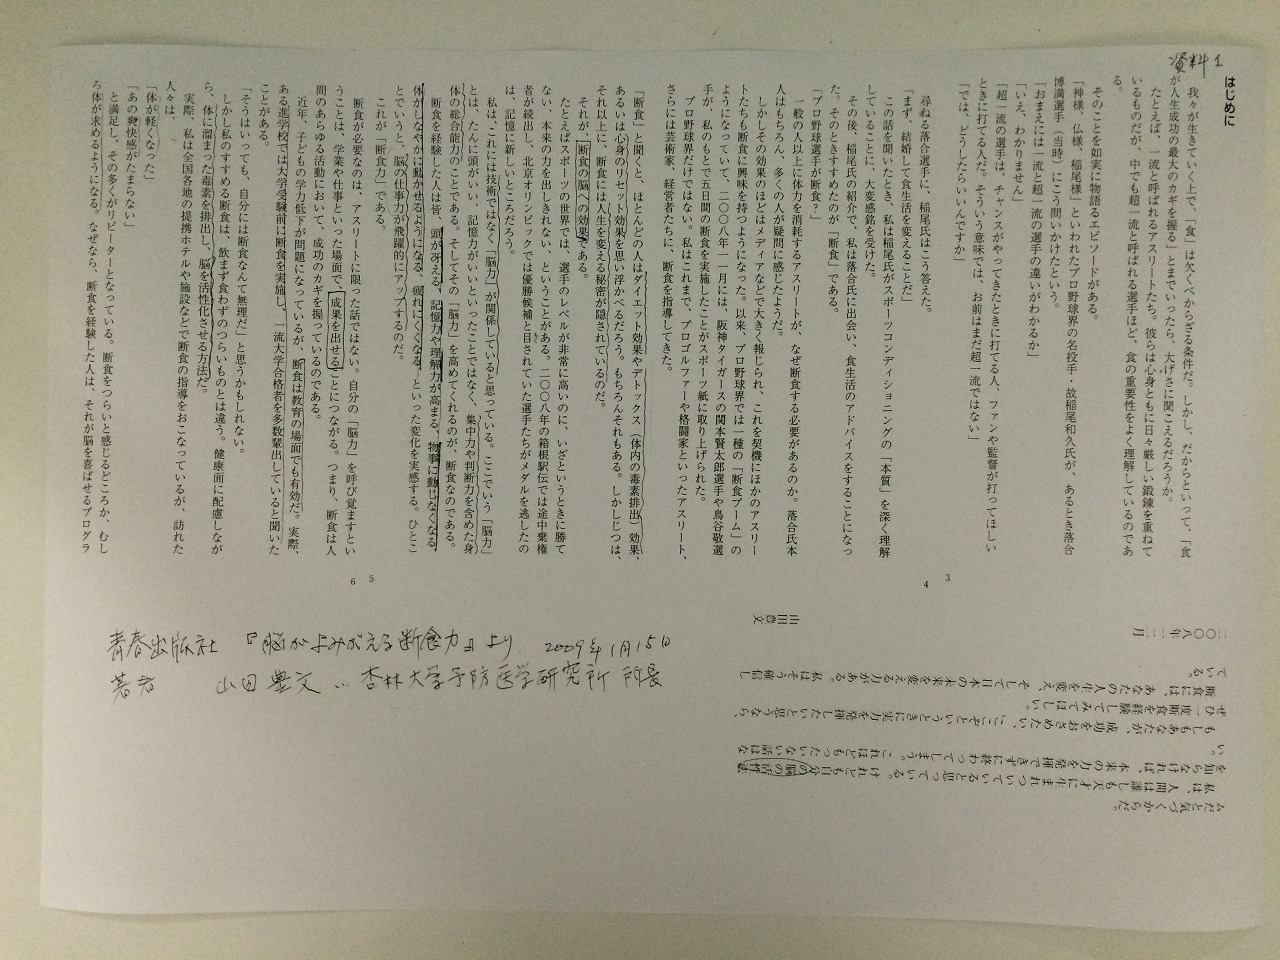 資料1
はじめに
我々が生きていく上で、「食」は欠くべからざる条件だ。しかし、だからといって、「食
が人生成功の最大のカギを握る」とまでいったら、大げさに聞こえるだろうか。
たとえば、一流と呼ばれるアスリートたち。彼らは心身ともに日々厳しい鍛錬を重ねて
いるものだが、中でも超一流と呼ばれる選手ほど、食の重要性をよく理解しているのであ
る。
そのことを如実に物語るエピソードがある。
「神様、仏様、稲尾様」といわれたプロ野球界の名投手・故稲尾和久氏が、あるとき落合
博満選手（当時）にこう問いかけたという。
「おまえには一流と超一流の選手の違いがわかるか」
「いえ、わかりません」
「超一流の選手は、チャンスがやってきたときに打てる人、ファンや監督が打ってほしい
ときに打てる人だ。そういう意味では、お前はまだ超一流ではない」
「では、どうしたらいいんですか」
3
尋ねる落合選手に、稲尾氏はこう答えた。
「まず、結婚して食生活を変えることだ」
この話を聞いたとき、私は稲尾氏がスポーツコンディショニングの「本質」を深く理解
していることに、大変感銘を受けた。
その後、稲尾氏の紹介で、私は落合氏に出会い、食生活のアドバイスをすることになっ
た。そのときすすめたのが「断食」である。
「プロ野球選手が断食？」
一般の人以上に体力を消耗するアスリートが、なぜ断食する必要があるのか。落合氏本
人はもちろん、多くの人が疑問に感じたようだ。
しかしその効果のほどはメディアなどで大きく報じられ、これを契機にほかのアスリー
トたちも断食に興味を持つようになった。以来、プロ野球界では一種の「断食ブーム」の
ようになっていて、二〇〇八年一一月には、阪神タイガースの関本賢太郎選手や鳥谷敬選
手が、私のもとで五日間の断食を実施したことがスポーツ紙に取り上げられた。
プロ野球界だけではない。私はこれまで、プロゴルファーや格闘家といったアスリート、
さらには芸術家、経営者たちに、断食を指導してきた。
4
「断食」と聞くと、ほとんどの人はダイエット効果やデトックス（体内の毒素排出）効果、
あるいは心身のリセット効果を思い浮かべるだろう。もちろんそれもある。しかしじつは、
それ以上に、断食には人生を変える秘密が隠されているのだ。
それが、「断食の脳への効果」である。
たとえばスポーツの世界では、選手のレベルが非常に高いのに、いざというときに勝て
ない、本来の力を出しきれない、ということがある。二〇〇八年の箱根駅伝では途中棄権
者が続出し、北京オリンピックでは優勝候補と目されていた選手たちがメダルを逃したの
は、記憶に新しいところだろう。
私は、これには技術ではなく「脳力」が関係していると思っている。ここでいう「脳力」
とは、たんに頭がいい、記憶力がいいといったことではなく、集中力や判断力を含めた身
体の総合能力のことである。そしてその「脳力」を高めてくれるのが、断食なのである。
断食を経験した人は皆、頭が冴える、記憶力や理解力が高まる、物事に動じなくなる、
体がしなやかに動かせるようになる、疲れにくくなる、といった変化を実感する。ひとこ
とでいうと、脳の仕事力が飛躍的にアップするのだ。
これが「断食力」である。
5
断食が必要なのは、アスリートに限った話ではない。自分の「脳力」を呼び覚ますとい
うことは、学業や仕事といった場面で、成果を出せることにつながる。つまり、断食は人
間のあらゆる活動において、成功のカギを握っているのである。
近年、子どもの学力低下が問題になっているが、断食は教育の場面でも有効だ。実際、
ある進学校では大学受験前に断食を実施し、一流大学合格者を多数輩出していると聞いた
ことがある。
「そうはいっても、自分には断食なんて無理だ」と思うかもしれない。
しかし私のすすめる断食は、飲まず食わずのつらいものとは違う。健康面に配慮しなが
ら、体に溜まった毒素を排出し、脳を活性化させる方法だ。
実際、私は全国各地の提携ホテルや施設などで断食の指導をおこなっているが、訪れた
人々は、
「体が軽くなった」
「あの爽快感がたまらない」
と満足し、その多くがリピーターとなっている。断食をつらいと感じるどころか、むし
ろ体が求めるようになる。なぜなら、断食を経験した人は、それが脳を喜ばせるプログラ
6
ムだと気づくからだ。
私は、人間は誰しも天才に生まれついていると思っている。けれども自分の脳の活性法
を知らなければ、本来の力を発揮できずに終わってしまう。これほどもったいない話はな
い。
もしもあなたが、成功をおさめたい、ここぞというときに実力を発揮したいと思うなら、
ぜひ一度断食を経験してみてほしい。
断食には、あなたの人生を変え、そして日本の未来を変える力がある。私はそう確信し
ている。
二〇〇八年一二月
山田豊文
青春出版社 『脳がよみがえる断食力』より 2009年1月15日
著者 山田豊文 … 杏林大学予防医学研究所 所長